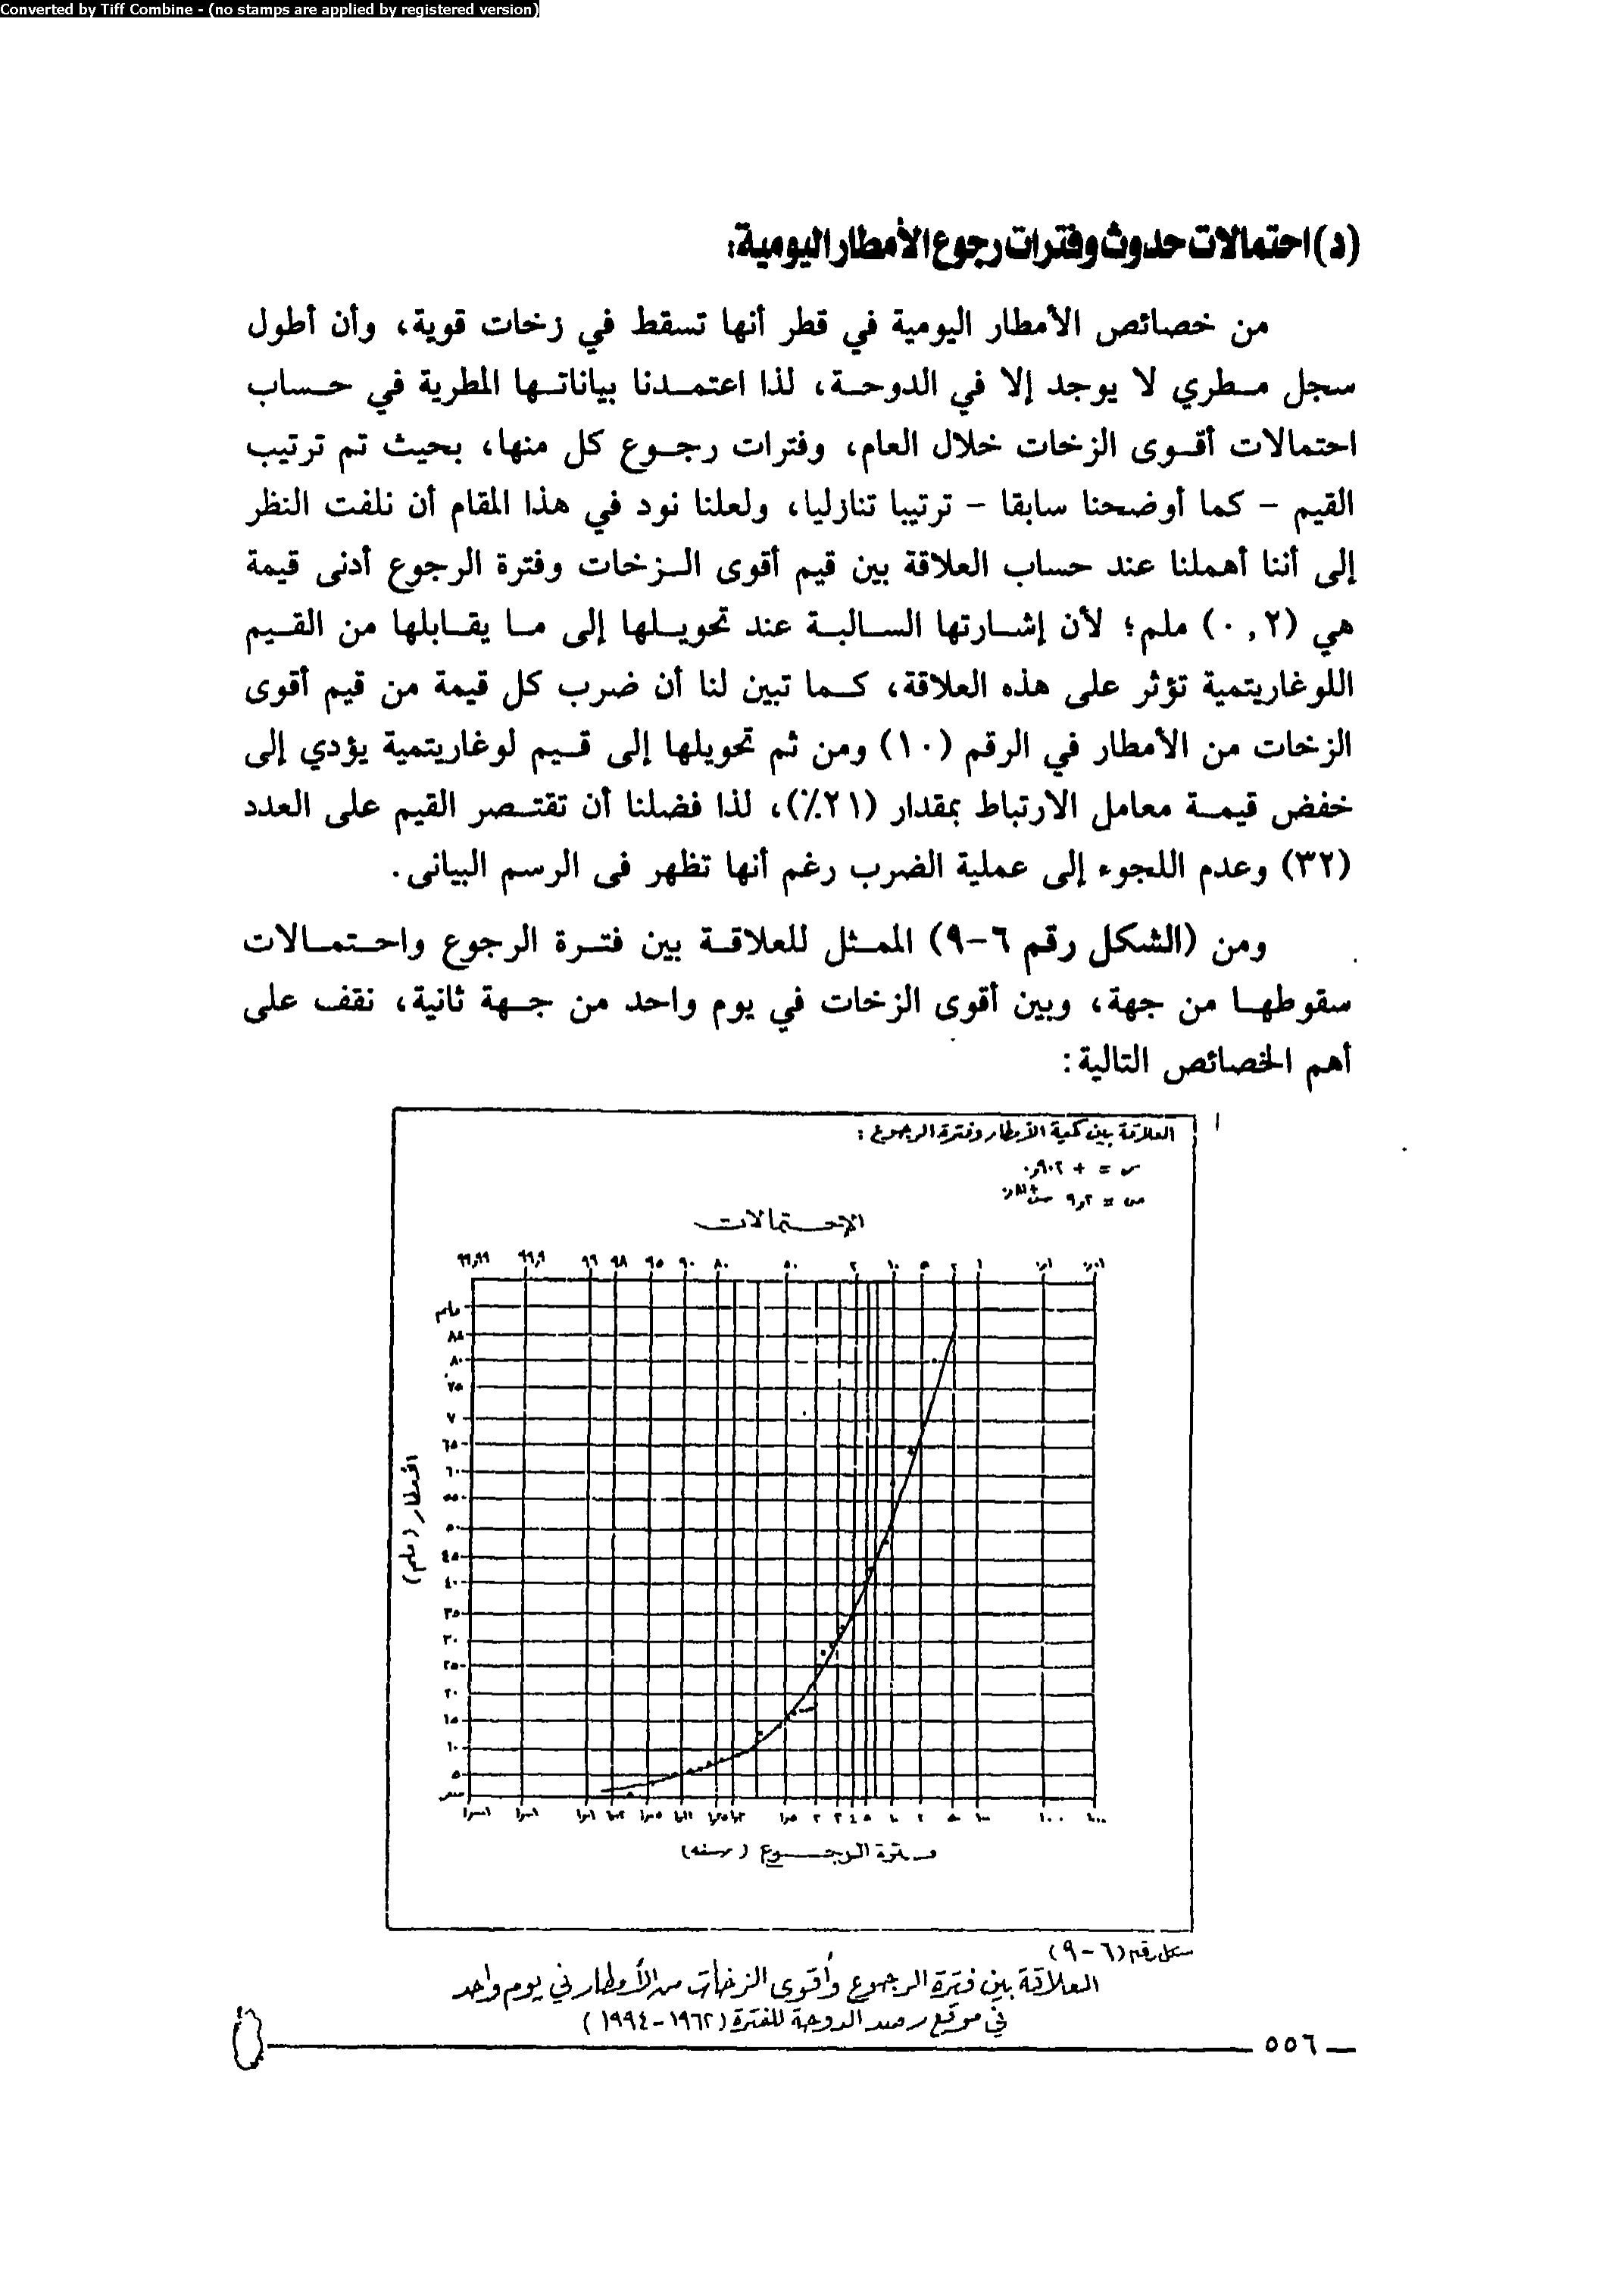 Converted by Tiff Combine - (no stamps are applied by registered version)
(د) احتمالات حدوث وفترات رجوع الأمطار اليومية:
من خصائص الأمطار اليومية في قطر أنها تسقط في زخات قوية، وأن أطول
سجل مطري لا يوجد إلا في الدوحة، لذا اعتمدنا بياناتها المطرية في حساب
احتمالات أقوى الزخات خلال العام، وفترات رجوع كل منها، بحيث تم ترتيب
القيم - كما أوضحنا سابقا - ترتيبا تنازليا، ولعلنا نود في هذا المقام أن نلفت النظر
إلى أننا أهملنا عند حساب العلاقة بين قيم أقوى الزخات وفترة الرجوع أدنى قيمة
هي (٠,٢) ملم؛ لأن إشارتها السالبة عند تحويلها إلى ما يقابلها من القيم
اللوغاريتمية تؤثر على هذه العلاقة، كما تبين لنا أن ضرب كل قيمة من قيم أقوى
الزخات من الأمطار في الرقم (١٠) ومن ثم تحويلها إلى قيم لوغاريتمية يؤدي إلى
خفض قيمة معامل الارتباط بمقدار (٢١٪)، لذا فضلنا أن تقتصر القيم على العدد
(٣٢) وعدم اللجوء إلى عملية الضرب رغم أنها تظهر فى الرسم البيانى.
ومن (الشكل رقم ٦-٩) الممثل للعلاقة بين فترة الرجوع واحتمالات
سقوطها من جهة، وبين أقوى الزخات في يوم واحد من جهة ثانية، نقف على
أهم الخصائص التالية:
العلاقة بين كمية الأمطار وفترة الرجوع:
الإحتمالات
٩٩,٩٩ ٩٩,٩ ٩٩ ٩٨ ٩٥ ٩٠ ٨٠ ٥٠ ٢٠ ١٠ ٥ ٢ ١
ملم
٨٥
٨٠
٧٥
٧٠
٦٥
٦٠
٥٥
٥٠
٤٥
٤٠
٣٥
٣٠
٢٥
٢٠
١٥
١٠
٥
صفر
الأمطار (ملم)
فترة الرجوع (سنه)
شكل رقم (٦-٩)
العلاقة بين فترة الرجوع وأقوى الزخات من الأمطار في يوم واحد
في موقع رصد الدوحة للفترة (١٩٦٢-١٩٩٤)
٥٥٦